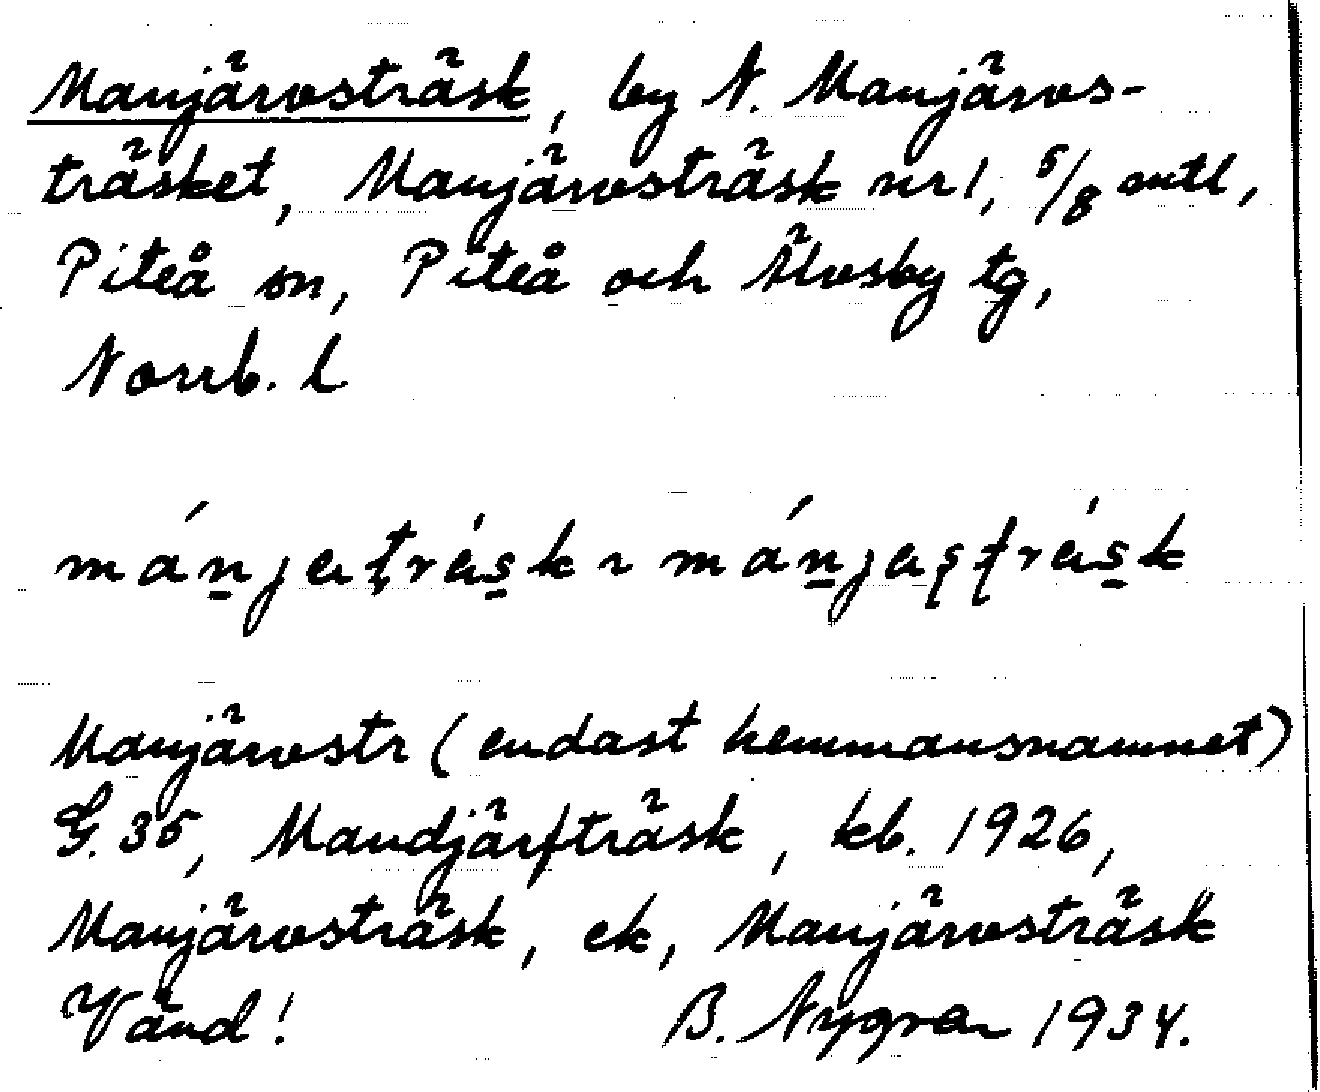 Manjärvsträsk, by N. Manjärvs-
träsket, Manjärvsträsk nr 1, 5/8 mtl,
Piteå sn, Piteå och Älvsby tg,
Norrb. l
Manjärvstr (endast hemmansnamnet)
G. 35, Mandjärfträsk, kb. 1926,
Manjärvsträsk, ek, Manjärvsträsk
Vänd! B. Nygren 1934.